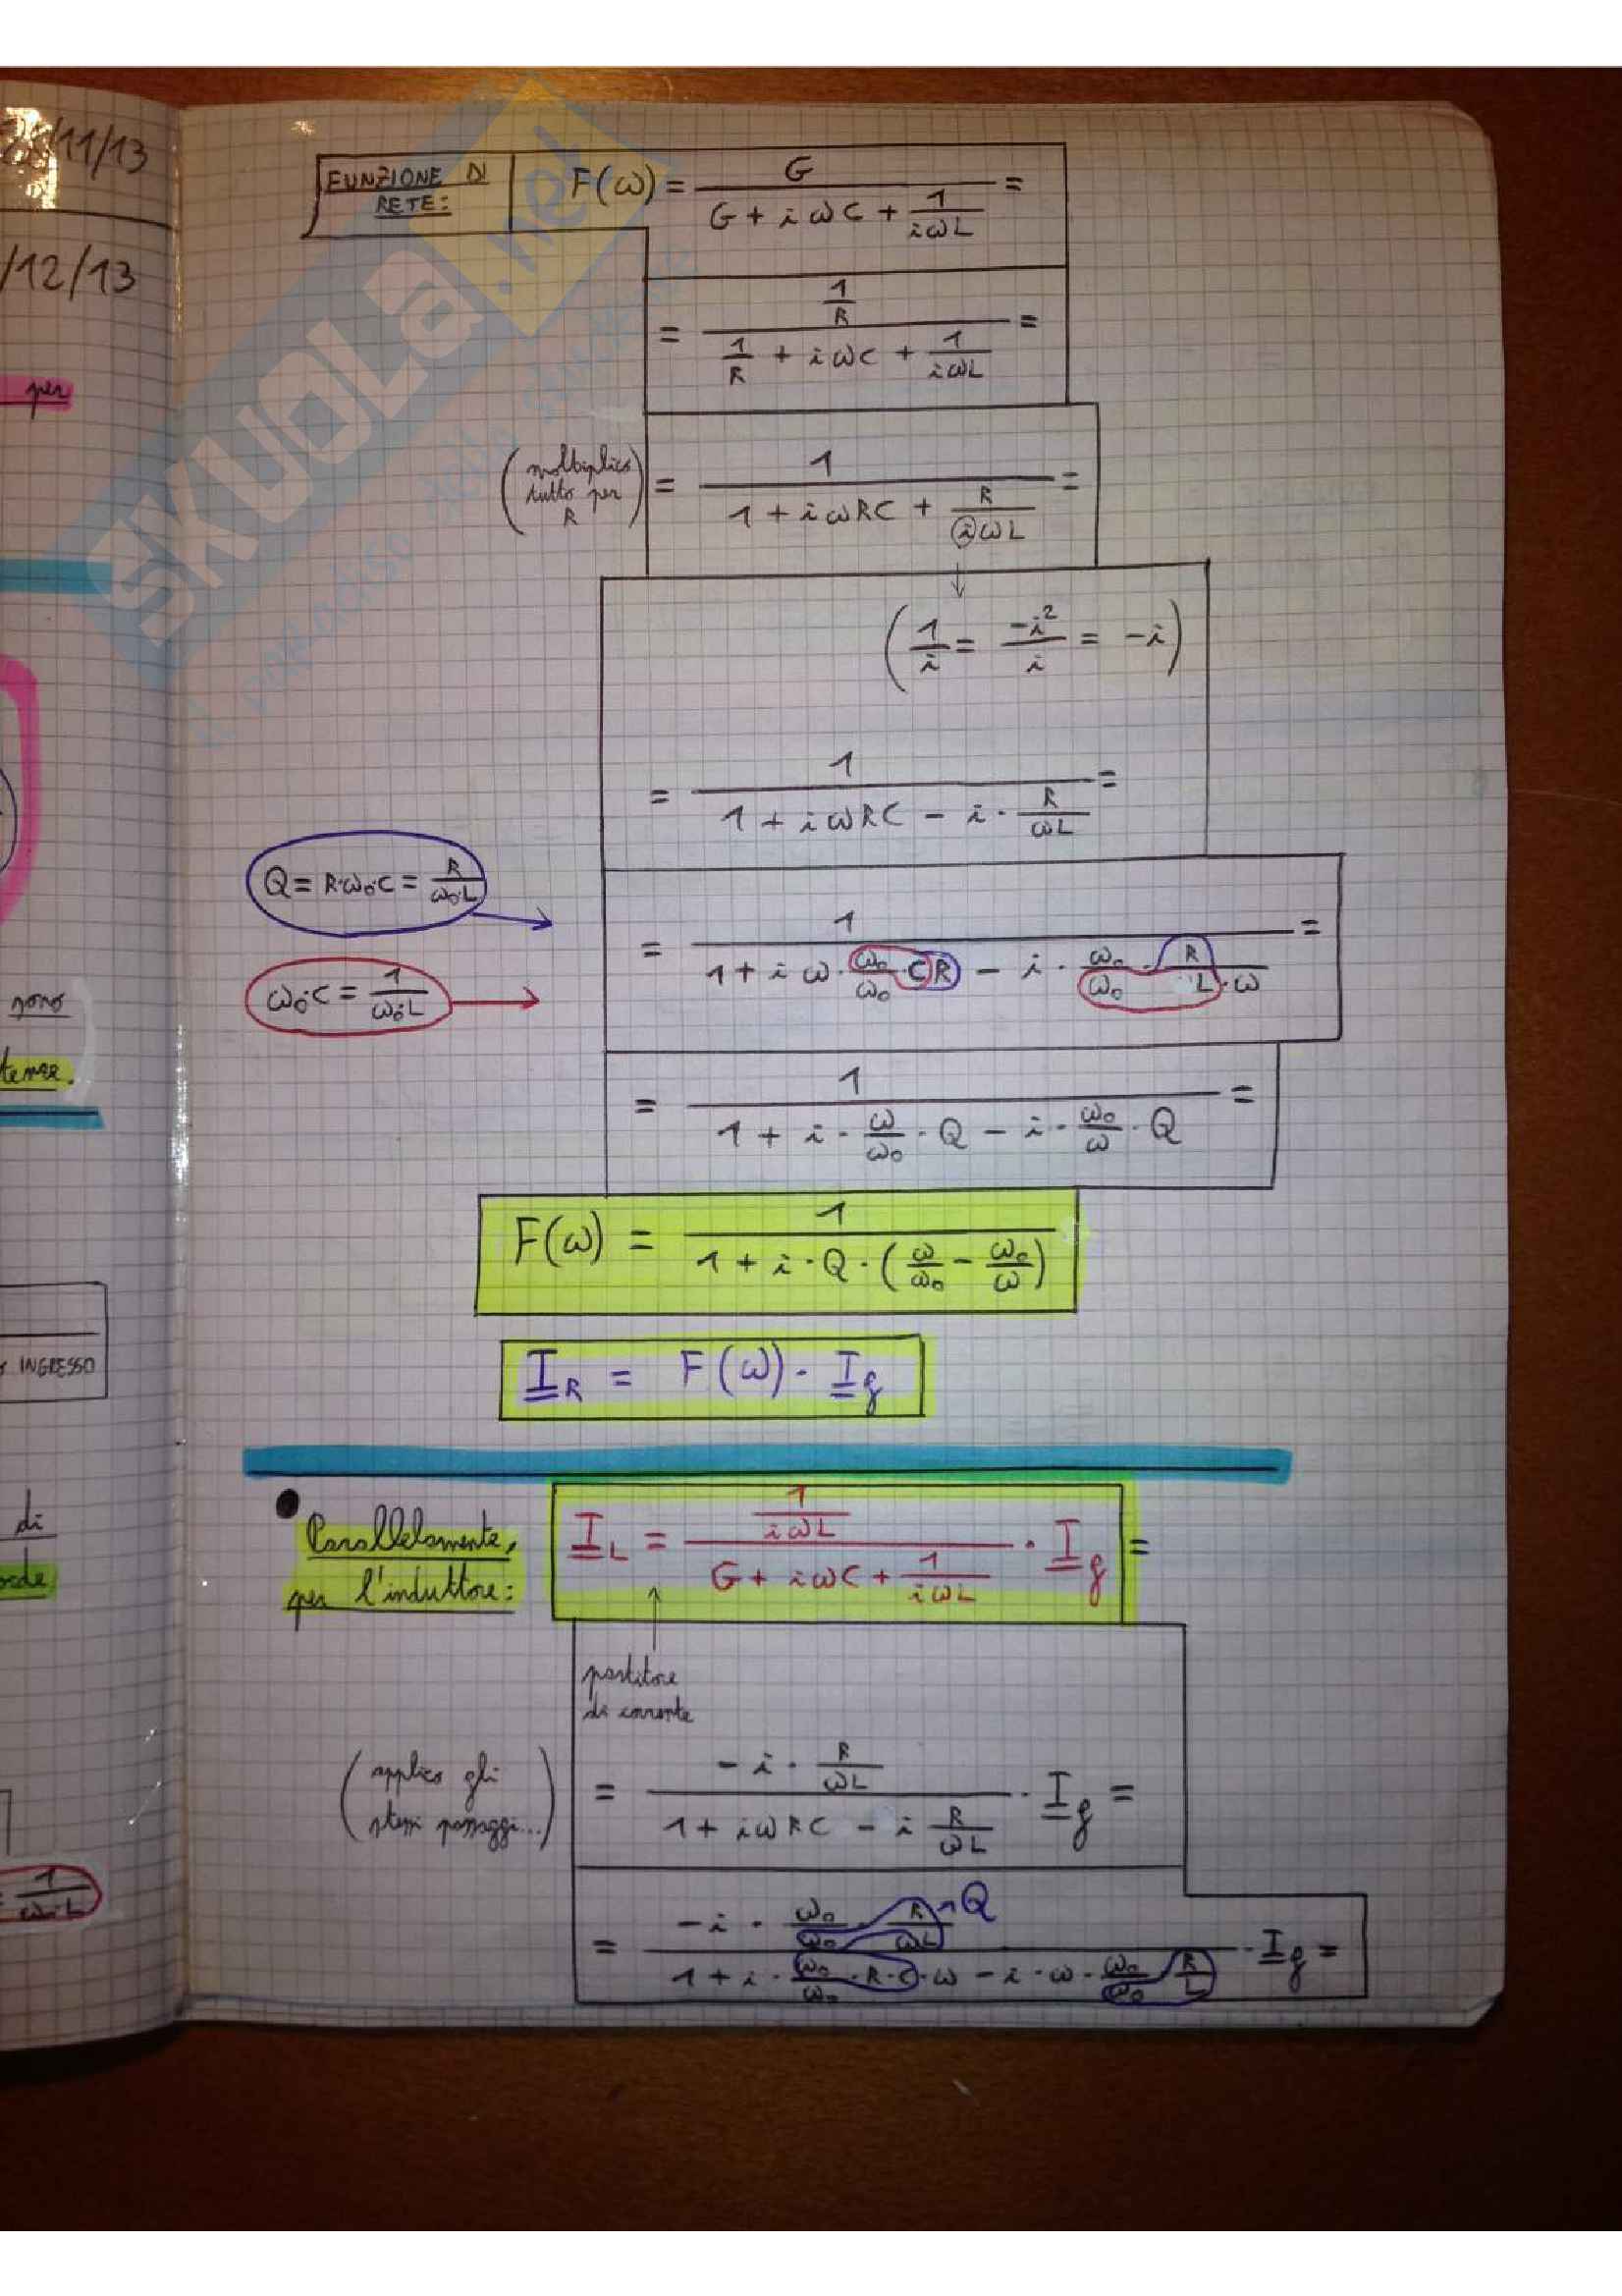 26/11/13
/12/13
per
sono
tenze.
INGRESSO
di
orde
= 1/(ω₀·L)
SKUOLA.net
il paradiso dello studente
FUNZIONE DI RETE: F(ω) = G / (G + iωC + 1/(iωL)) =
= (1/R) / (1/R + iωC + 1/(iωL)) =
(moltiplico tutto per R) = 1 / (1 + iωRC + R/(iωL)) =
(1/i = -i²/i = -i)
= 1 / (1 + iωRC - i · R/(ωL)) =
Q = R·ω₀·C = R/(ω₀·L)
= 1 / (1 + iω · ω₀/ω₀ · CR - i · ω₀/ω₀ · R/(L·ω)) =
ω₀·C = 1/(ω₀·L)
= 1 / (1 + i · ω/ω₀ · Q - i · ω₀/ω · Q) =
F(ω) = 1 / (1 + i · Q · (ω/ω₀ - ω₀/ω))
I_R = F(ω) · I_g
• Parallelamente, per l'induttore: I_L = (1/(iωL)) / (G + iωC + 1/(iωL)) · I_g =
partitore
di corrente
(applico gli stessi passaggi...) = (-i · R/(ωL)) / (1 + iωRC - i R/(ωL)) · I_g =
= (-i · ω₀/ω₀ · R/(ωL)) / (1 + i · ω₀/ω₀ · R · C · ω - i · ω · ω₀/ω₀ · R/L) · I_g =
Q